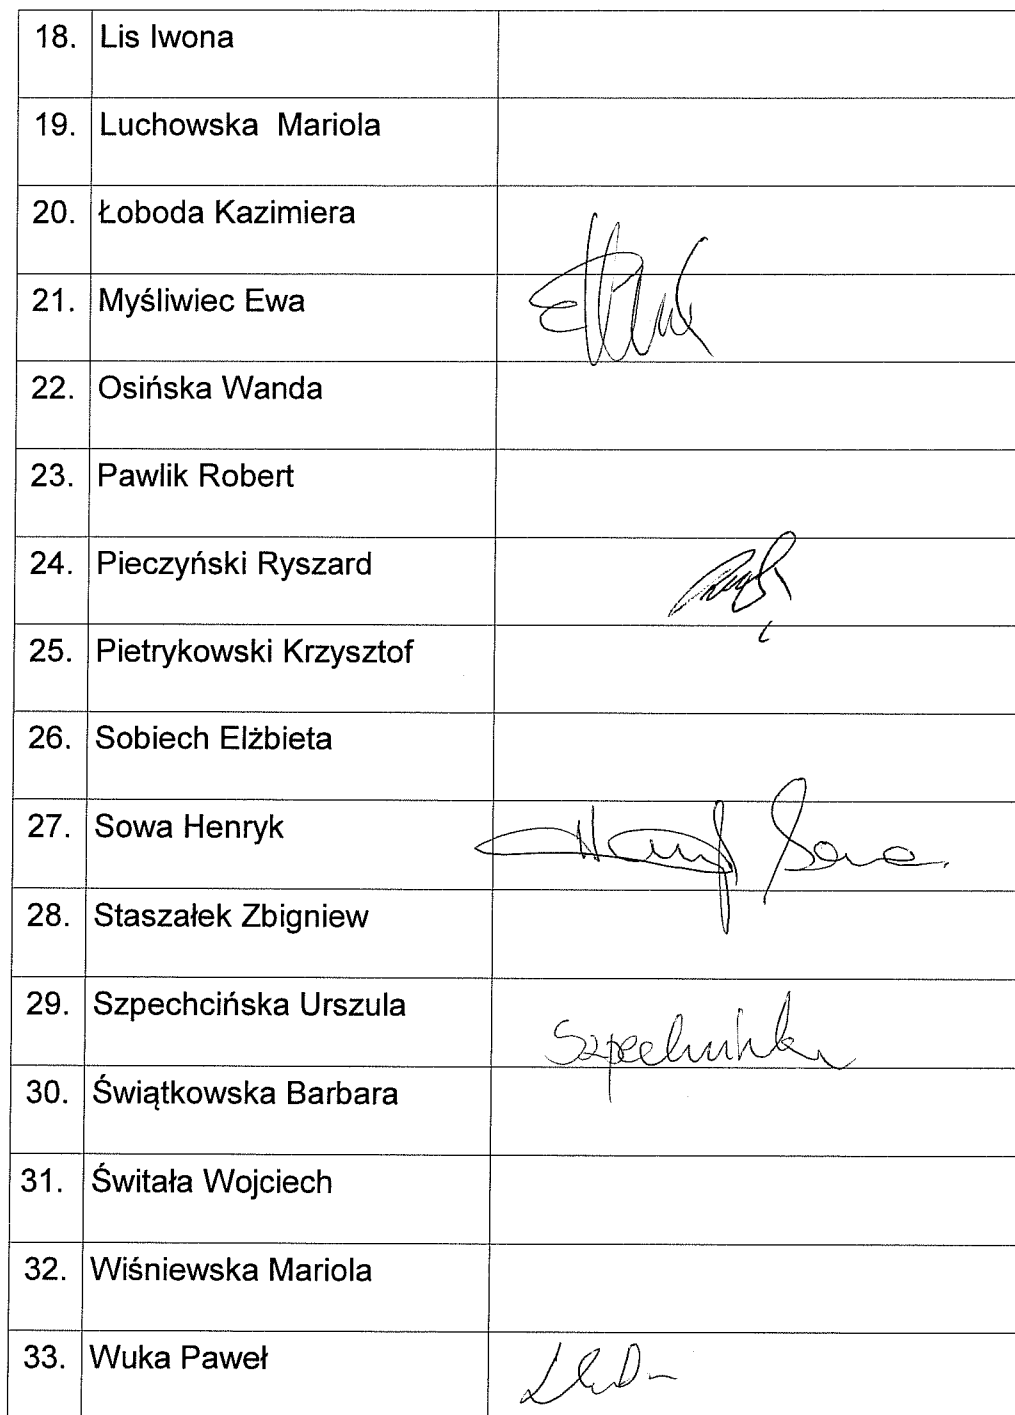 18. Lis Iwona
19. Luchowska Mariola
20. Łoboda Kazimiera
21. Myśliwiec Ewa
22. Osińska Wanda
23. Pawlik Robert
24. Pieczyński Ryszard
25. Pietrykowski Krzysztof
26. Sobiech Elżbieta
27. Sowa Henryk
28. Staszałek Zbigniew
29. Szpechcińska Urszula
30. Świątkowska Barbara
31. Świtała Wojciech
32. Wiśniewska Mariola
33. Wuka Paweł